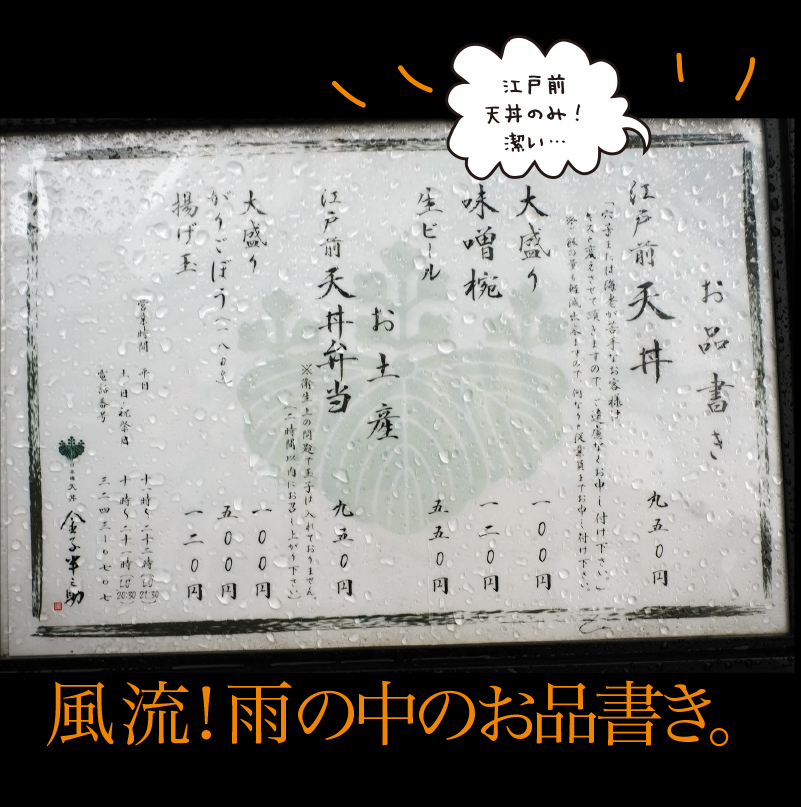 江戸前
天丼のみ！
潔い…
お品書き
江戸前天丼 九五〇円
「穴子または海老が苦手なお客様は
キスと変えさせて頂きますので、ご遠慮なくお申し付け下さい。」
大盛り 一〇〇円
味噌椀 一二〇円
生ビール 五五〇円
お土産
江戸前天丼弁当 九五〇円
※衛生上の問題で玉子は入れておりません。
（二時間以内にお召し上がり下さい）
大盛り 一〇〇円
がりごぼう（一八〇g） 五〇〇円
揚げ玉 一二〇円
営業時間 平日 十一時〜二十二時（LO 21:30）
土・日・祝祭日 十時〜二十一時（LO 20:30）
電話番号 三二四三－〇七〇七
日本橋 天丼
金子半之助
風流！雨の中のお品書き。